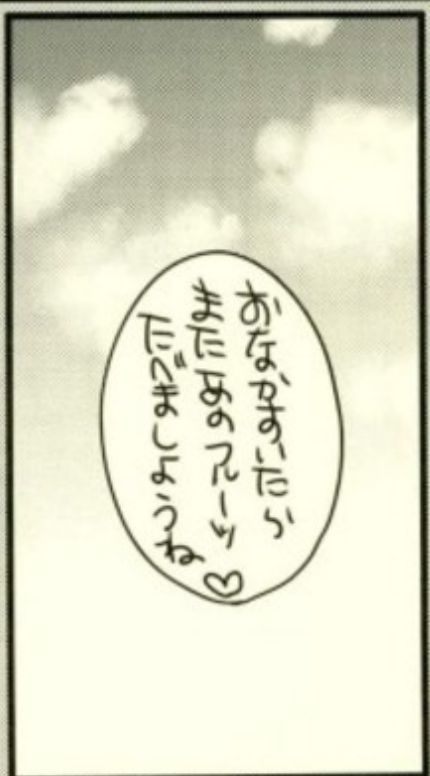 おなかすいたら
またあのフルーツ
たべましょうね♡